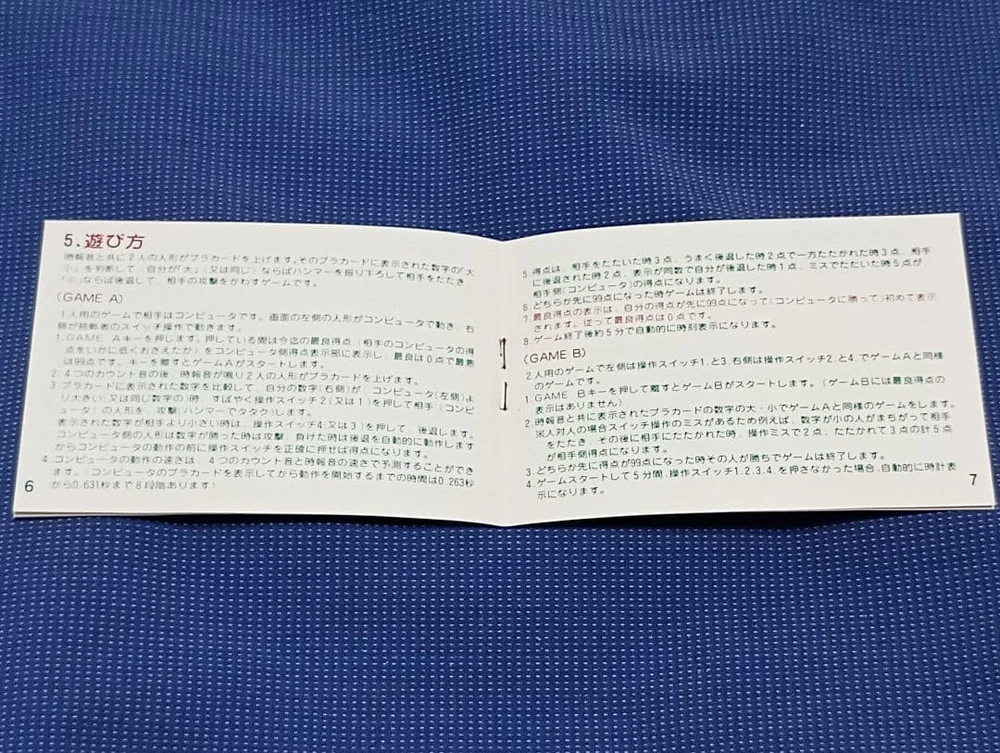 5.遊び方
時報音と共に2人の人形がプラカードを上げます。そのプラカードに表示された数字の「大
小」を判断して、自分が「大」(又は同じ)ならばハンマーを振り下ろして相手をたたき
「小」ならば後退して、相手の攻撃をかわすゲームです。
(GAME A)
1人用のゲームで相手はコンピュータです。画面の左側の人形がコンピュータで動き、右
側が挑戦者のスイッチ操作で動きます。
1.GAME Aキーを押します。押している間は今迄の最良得点(相手のコンピュータの得
点をいかに低くおさえたか)をコンピュータ側得点表示部に表示し、最良は0点で最悪
は99点です。キーを離すとゲームAがスタートします。
2.4つのカウント音の後、時報音が鳴り2人の人形がプラカードを上げます。
3.プラカードに表示された数字を比較して、自分の数字(右側)が、コンピュータ(左側)よ
り大きい(又は同じ数字の)時、すばやく操作スイッチ2(又は1)を押して相手(コンピ
ュータ)の人形を、攻撃(ハンマーでタタク)します。
表示された数字が相手より小さい時は、操作スイッチ4(又は3)を押して、後退します。
コンピュータ側の人形は数字が勝った時は攻撃、負けた時は後退を自動的に動作します
からコンピュータの動作の前に操作スイッチを正確に押せば得点になります。
4.コンピュータの動作の速さは、4つのカウント音と時報音の速さで予測することができ
ます。(コンピュータのプラカードを表示してから動作を開始するまでの時間は0.263秒
から0.631秒まで8段階あります)
6
5.得点は、相手をたたいた時3点、うまく後退した時2点で一方たたかれた時3点、相手
に後退された時2点、表示が同数で自分が後退した時1点、ミスでたたいた時5点が、
相手側(コンピュータ)の得点になります。
6.どちらか先に99点になった時ゲームは終了します。
7.最良得点の表示は、自分の得点が先に99点になって(コンピュータに勝って)初めて表示
されます。従って最良得点は0点です。
8.ゲーム終了後約5分で自動的に時刻表示になります。
(GAME B)
2人用のゲームで左側は操作スイッチ1.と3.右側は操作スイッチ2.と4.でゲームAと同様
のゲームです。
1.GAME Bキーを押して離すとゲームBがスタートします。(ゲームBには最良得点の
表示はありません)
2.時報音と共に表示されたプラカードの数字の大・小でゲームAと同様のゲームをします。
※人対人の場合スイッチ操作のミスがあるため例えば、数字が小の人がまちがって相手
をたたき、その後に相手にたたかれた時、操作ミスで2点、たたかれて3点の計5点
が相手側得点になります。
3.どちらか先に得点が99点になった時その人が勝ちでゲームは終了します。
4.ゲームスタートして5分間、操作スイッチ1.2.3.4.を押さなかった場合、自動的に時計表
示になります。
7